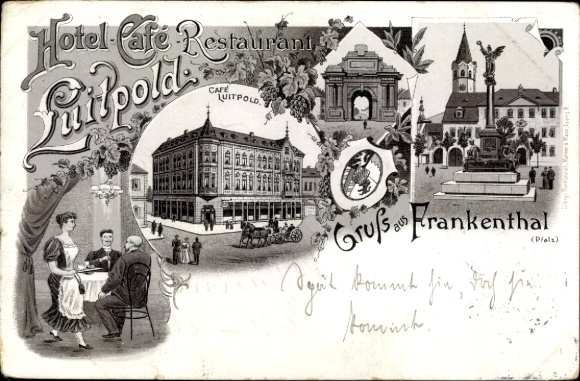 Hotel-Café-Restaurant
Luitpold.
CAFÉ
LUITPOLD.
Gruß aus Frankenthal
(Pfalz)
Spät kommt sie, doch sie
kommt.